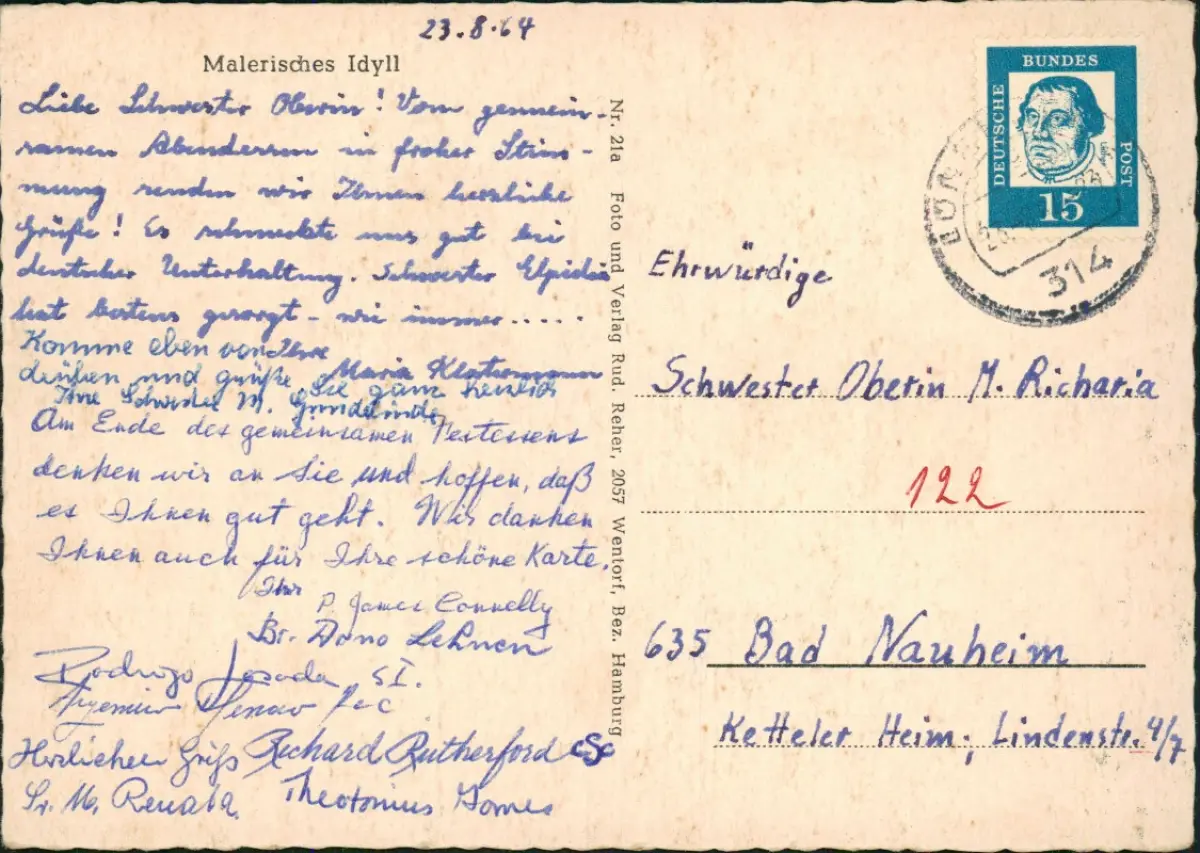 23.8.64
Malerisches Idyll
Liebe Schwester Oberin! Vom gemein-
samen Abendessen in froher Stim-
mung senden wir Ihnen herzliche
Grüße! Es schmeckte uns gut bei
deutscher Unterhaltung. Schwester Elpidia
hat bestens gesorgt - wie immer.....
Ihre
Maria Klostermann
Komme eben von
drüben und grüße Sie ganz herzlich
Ihre Schwester M.
Am Ende des gemeinsamen Festessens
denken wir an Sie und hoffen, daß
es Ihnen gut geht. Wir danken
Ihnen auch für Ihre schöne Karte.
Ihr
P. James Connelly
Br. Dano Lehnen
Rodrigo Losada SI.
Herzlichen Gruß Richard Rutherford CSC
Sr. M. Renata. Theotonius Gomes
Nr. 21a Foto und Verlag Rud. Reher, 2057 Wentorf, Bez. Hamburg
DEUTSCHE BUNDES POST
15
314
Ehrwürdige
Schwester Oberin M. Richaria
122
635 Bad Nauheim
Ketteler Heim; Lindenstr. 4/7